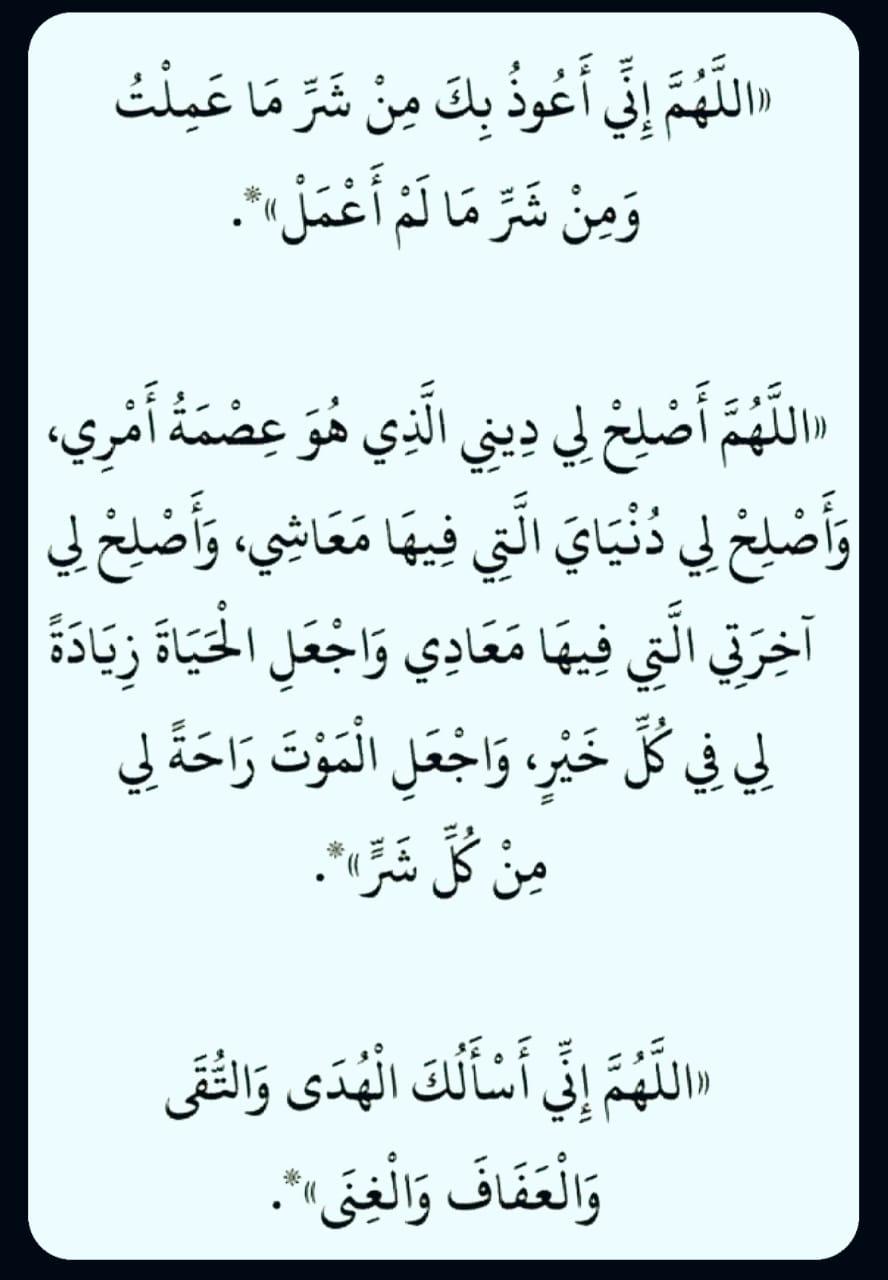 «اللَّهُمَّ إِنِّي أَعُوذُ بِكَ مِنْ شَرِّ مَا عَمِلْتُ
وَمِنْ شَرِّ مَا لَمْ أَعْمَلْ»*.
«اللَّهُمَّ أَصْلِحْ لِي دِينِي الَّذِي هُوَ عِصْمَةُ أَمْرِي،
وَأَصْلِحْ لِي دُنْيَايَ الَّتِي فِيهَا مَعَاشِي، وَأَصْلِحْ لِي
آخِرَتِي الَّتِي فِيهَا مَعَادِي وَاجْعَلِ الْحَيَاةَ زِيَادَةً
لِي فِي كُلِّ خَيْرٍ، وَاجْعَلِ الْمَوْتَ رَاحَةً لِي
مِنْ كُلِّ شَرٍّ»*.
«اللَّهُمَّ إِنِّي أَسْأَلُكَ الْهُدَى وَالتُّقَى
وَالْعَفَافَ وَالْغِنَى»*.